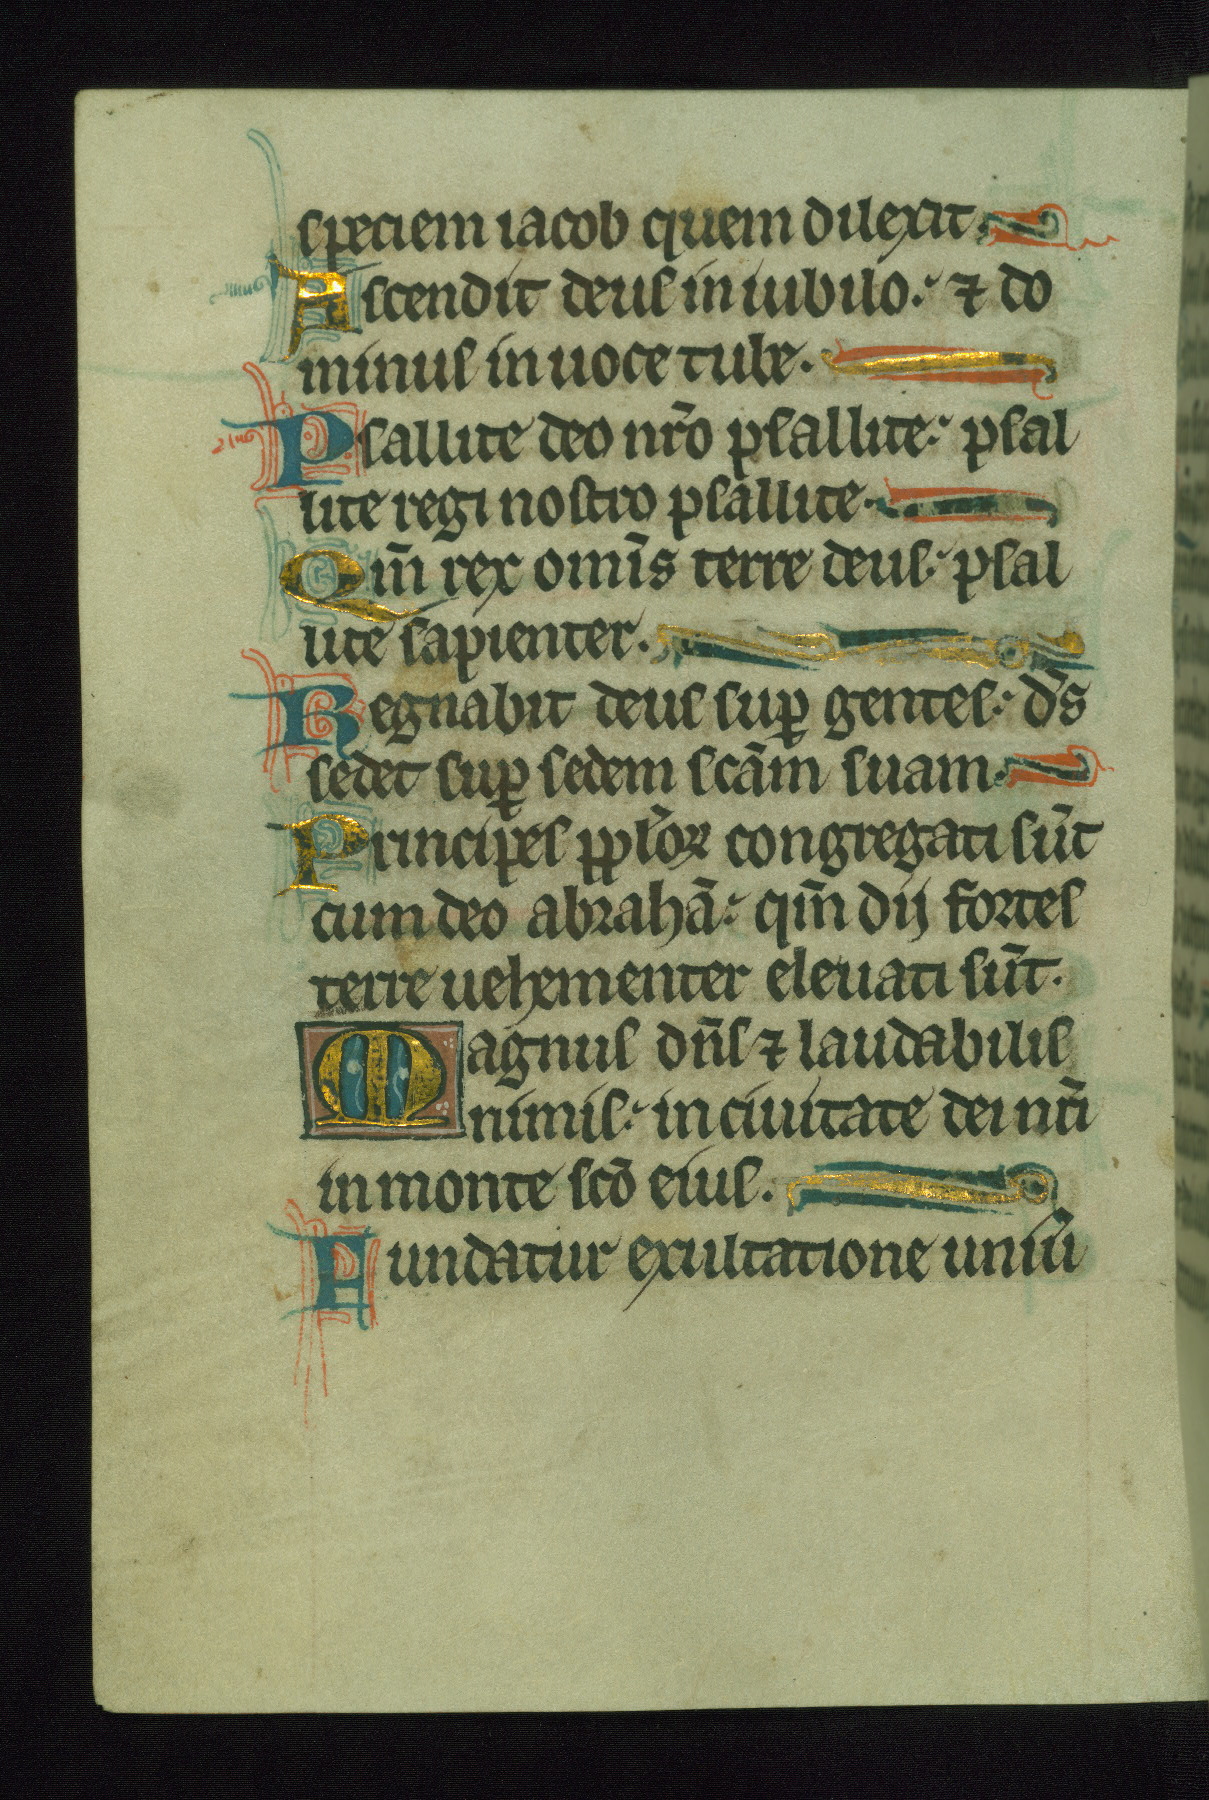 speciem iacob quem dilexit.
Ascendit deus in iubilo. ⁊ do
minus in uoce tube.
Psallite deo nr̄o psallite. psal
lite regi nostro psallite.
Qm̄ rex omīs terre deus. psal
lite sapienter.
Regnabit deus suꝑ gentes. d̄s
sedet suꝑ sedem scām suam.
Principes ppl̄oꝝ congregati sūt
cum deo abrahā. qm̄ dij fortes
terre uehementer eleuati sūt.
Magnus dn̄s ⁊ laudabilis
nimis. in ciuitate dei nr̄i
in monte scō eius.
Fundatur exultatione uniū